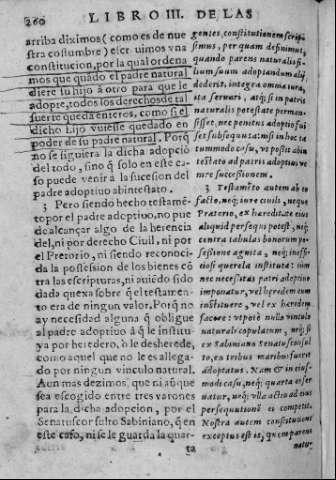 260 LIBRO III. DE LAS
arriba diximos (como es de nue
stra costumbre) escriuimos vna
constitucion, por la qual ordena
mos que quãdo el padre natural
diere su hijo à otro para que le
adopte, todos los derechos de tal
suerte queda enteros, como si el
dicho Hijo vuiesse quedado en
poder de su padre natural. Porq̃
no se siguiera la dicha adopciõ
del todo, sino q̃ solo en este ca-
so puede venir à la sucession del
padre adoptiuo abintestato.
3 Pero siendo hecho testamẽ-
to por el padre adoptiuo, no pue
de alcançar algo de la herencia
del, ni por derecho Ciuil, ni por
el Pretorio, ni siendo reconoci-
da la possession de los bienes cõ
tra las escripturas, ni siẽdo sido
dada quexa sobre q̃l testamen-
to era de ningun valor. Porq̃ no
ay necesidad alguna q̃ obligue
al padre adoptiuo à q̃ le institu-
ya por heredero, ò le desherede,
como aquel que no le es allega-
do por ningun vinculo natural.
Aun mas dezimos, que ni aũque
sea escogido entre tres varones
para la dicha adopcion, por el
Senatusconsulto Sabiniano, q̃ en
este caso, ni se le guarda la quar-
ta
gentes, constitutionem scrip
simus, per quam definimus,
quando parens naturalis fi-
lium suum adoptandum alij
dederit, integra omnia iu-
ra ita seruari, atq; si in patris
naturalis potestate perman-
sisset, nec penitus adoptio fui
set subsequuta: nisi in hoc ta
tummodo casu, vt possit abin
testato ad patris adoptiui ve
nire successionem.
3 Testamẽto autem ab eo
facto, neq; iure ciuili, neque
Prætorio, ex hæreditate eius
aliquid persequi potest, neq;
contra tabulas bonorum pos-
sessione agnita, neq; inoffi-
ciosi querela instituta: cùm
nec necessitas patri adoptiuo
imponatur, vel hæredem eum
instituere, vel ex hæredem
facere: vtpotè nullo vinculo
naturali copulatum, neq; si
ex sabiniano senatusconsul
to, ex tribus maribus fuerit
adoptatus. Nam & in eius-
modi casu, neq; quarta ei ser
uatur, neq; vlla actio ad eius
persequutionẽ ei competit.
Nostra autem constitutione
exceptus est is, quem parens
natur-